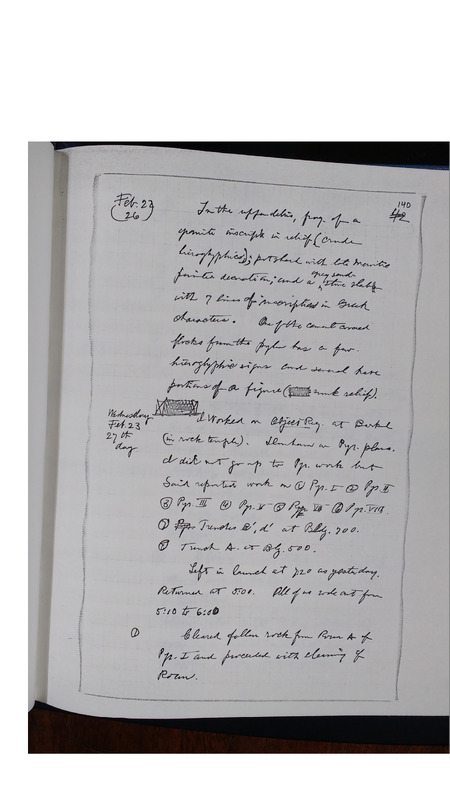 Feb. 23
(26)
140
In the upper debris, frag. of a
granite inscript. in relief (crude
hieroglyphics); potsherd with late Meroitic
painted decoration; and a grey sand-
stone slab
with 7 lines of inscription in Greek
characters. One of the
blocks from the pylon has a few
hieroglyphic signs and several have
portions of a figure (sunk relief).
Wednesday
Feb. 23
27th
day
I Worked on Object Reg. at Barkal
(in rock temple). Dunham on Pyr. plans.
I did not go up to Pyr. work but
Said reported work on ① Pyr. I ② Pyr. II
③ Pyr. III ④ Pyr. V ⑤ Pyr. VII ⑥ Pyr. VIII
⑦ Trenches d' at Bldg. 700.
⑧ Trench A. at Bldg. 500.
Left in launch at 720 as yesterday.
Returned at 5:00. All of us rode out from
5:10 to 6:00
① Cleared fallen rock from Room A of
Pyr. I and proceeded with clearing of
Room.